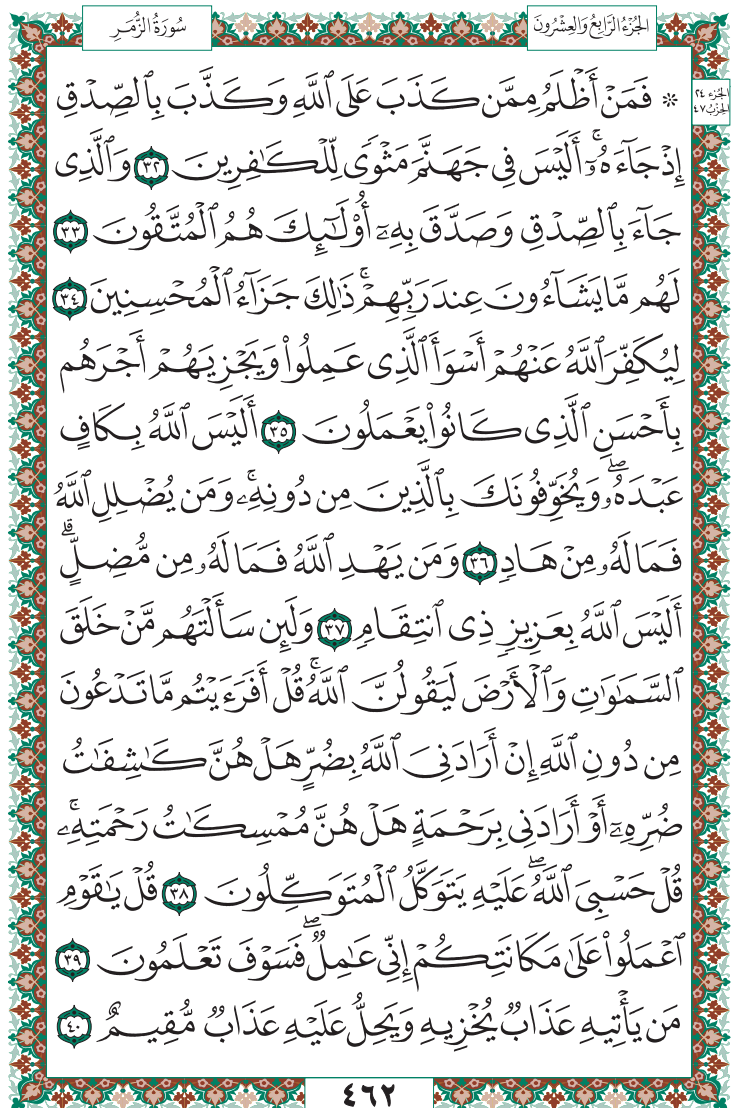 الجُزْءُ الرَّابِعُ وَالعِشْرُونَ
سُورَةُ الزُّمَرِ
الجزء ٢٤
الحزب ٤٧
۞ فَمَنْ أَظْلَمُ مِمَّن كَذَبَ عَلَى ٱللَّهِ وَكَذَّبَ بِٱلصِّدْقِ
إِذْ جَآءَهُۥٓ ۚ أَلَيْسَ فِى جَهَنَّمَ مَثْوًى لِّلْكَـٰفِرِينَ ٣٢ وَٱلَّذِى
جَآءَ بِٱلصِّدْقِ وَصَدَّقَ بِهِۦٓ أُو۟لَـٰٓئِكَ هُمُ ٱلْمُتَّقُونَ ٣٣
لَهُم مَّا يَشَآءُونَ عِندَ رَبِّهِمْ ۚ ذَٰلِكَ جَزَآءُ ٱلْمُحْسِنِينَ ٣٤
لِيُكَفِّرَ ٱللَّهُ عَنْهُمْ أَسْوَأَ ٱلَّذِى عَمِلُوا۟ وَيَجْزِيَهُمْ أَجْرَهُم
بِأَحْسَنِ ٱلَّذِى كَانُوا۟ يَعْمَلُونَ ٣٥ أَلَيْسَ ٱللَّهُ بِكَافٍ
عَبْدَهُۥ ۖ وَيُخَوِّفُونَكَ بِٱلَّذِينَ مِن دُونِهِۦ ۚ وَمَن يُضْلِلِ ٱللَّهُ
فَمَا لَهُۥ مِنْ هَادٍ ٣٦ وَمَن يَهْدِ ٱللَّهُ فَمَا لَهُۥ مِن مُّضِلٍّ ۗ
أَلَيْسَ ٱللَّهُ بِعَزِيزٍ ذِى ٱنتِقَامٍ ٣٧ وَلَئِن سَأَلْتَهُم مَّنْ خَلَقَ
ٱلسَّمَـٰوَٰتِ وَٱلْأَرْضَ لَيَقُولُنَّ ٱللَّهُ ۚ قُلْ أَفَرَءَيْتُم مَّا تَدْعُونَ
مِن دُونِ ٱللَّهِ إِنْ أَرَادَنِىَ ٱللَّهُ بِضُرٍّ هَلْ هُنَّ كَـٰشِفَـٰتُ
ضُرِّهِۦٓ أَوْ أَرَادَنِى بِرَحْمَةٍ هَلْ هُنَّ مُمْسِكَـٰتُ رَحْمَتِهِۦ ۚ
قُلْ حَسْبِىَ ٱللَّهُ ۖ عَلَيْهِ يَتَوَكَّلُ ٱلْمُتَوَكِّلُونَ ٣٨ قُلْ يَـٰقَوْمِ
ٱعْمَلُوا۟ عَلَىٰ مَكَانَتِكُمْ إِنِّى عَـٰمِلٌ ۖ فَسَوْفَ تَعْلَمُونَ ٣٩
مَن يَأْتِيهِ عَذَابٌ يُخْزِيهِ وَيَحِلُّ عَلَيْهِ عَذَابٌ مُّقِيمٌ ٤٠
٤٦٢